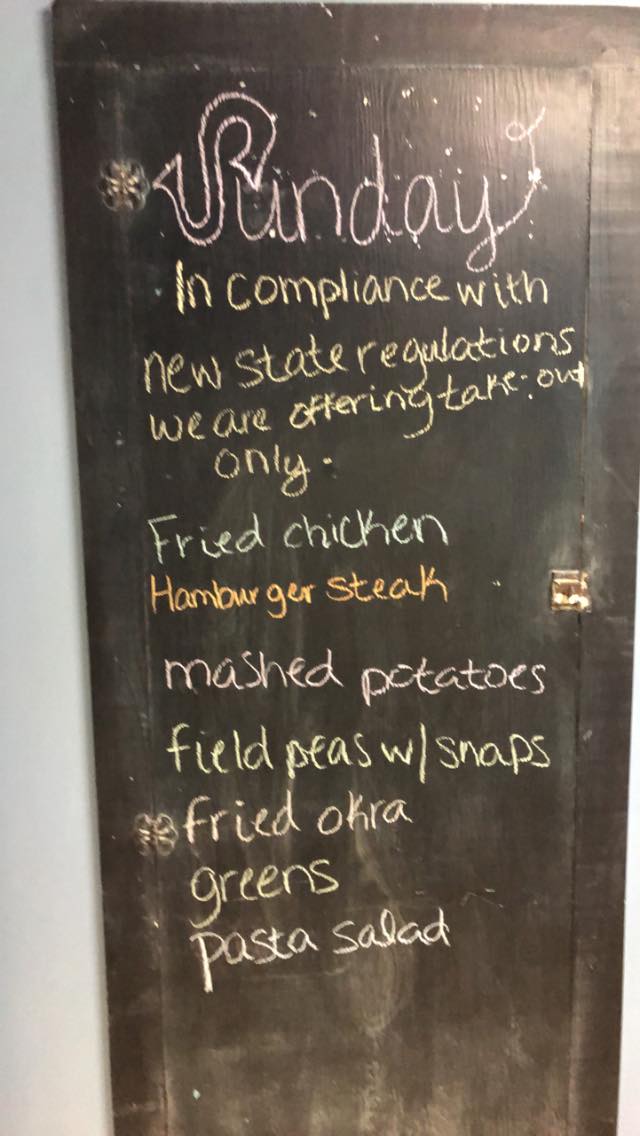 Sunday
In compliance with
new state regulations
we are offering take-out
only.
Fried chicken
Hamburger steak
mashed potatoes
field peas w/ snaps
fried okra
greens
pasta salad